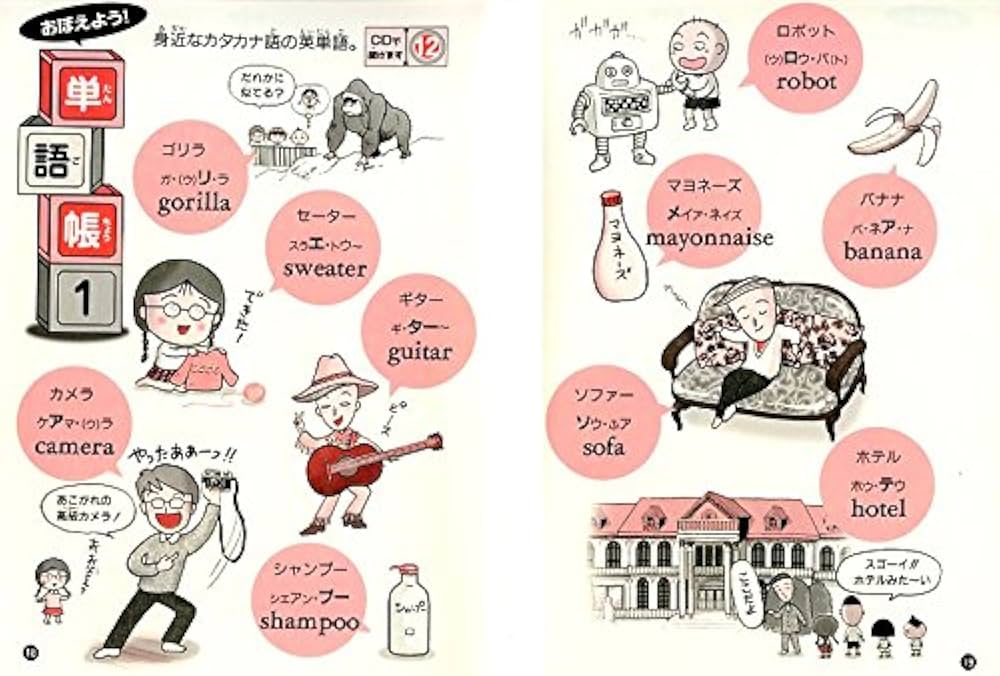 おぼえよう!
単 たん
語 ご
帳 ちょう
1
身近なカタカナ語の英単語。
CDで
聞けます
12
だれかに
似てる?
ゴリラ
ガ・(ウ)リ・ラ
gorilla
セーター
スウエ・トウ〜
sweater
できた!
ギター
ギ・ター〜
guitar
ピース
カメラ
ケアマ・(ウ)ラ
camera
やったあぁーっ!!
あこがれの
高級カメラ!
シャンプー
シェアン・プー
shampoo
シャンプー
18
ガガガ…
ロボット
(ウ)ロウ・バ(ト)
robot
バナナ
バ・ネア・ナ
banana
マヨネーズ
メイァ・ネイズ
mayonnaise
マヨネーズ
ソファー
ソウ・ふア
sofa
ホテル
ホウ・テウ
hotel
スゴーイ!!
ホテルみたーい
19